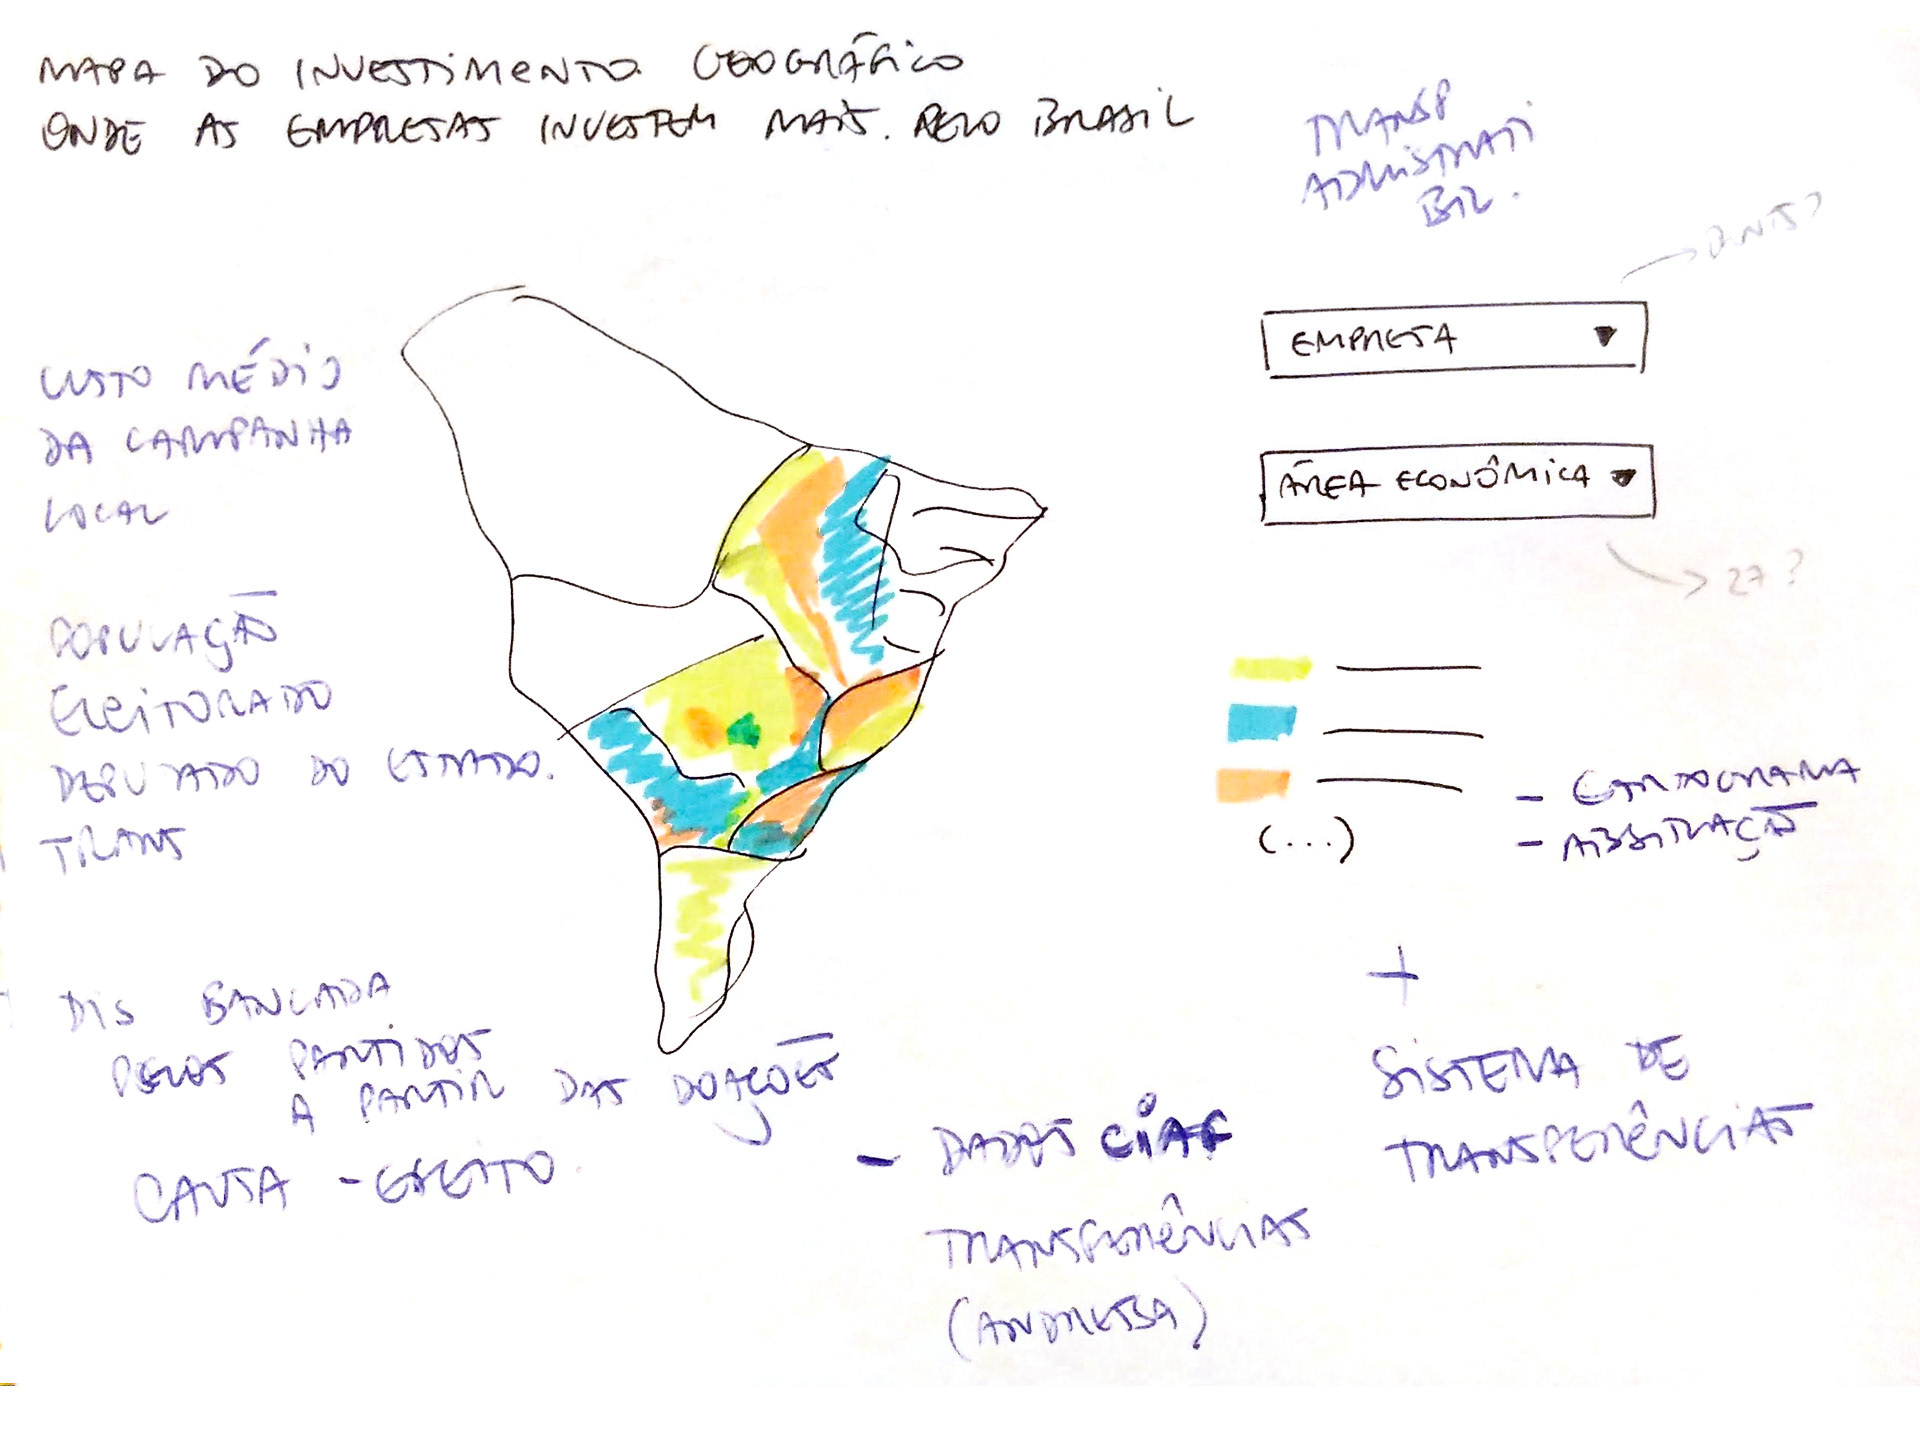 MAPA DO INVESTIMENTO GEOGRÁFICO
ONDE AS EMPRESAS INVESTEM MAIS. PELO BRASIL
TRANSP
ADMISTRATI
EMPRESA
CUSTO MÉDIO
DA CAMPANHA
LOCAL
ÁREA ECONÔMICA
27?
POPULAÇÃO
ELEITORADO
DEPUTADO DO ESTADO.
TRANS
- CARTOGRAMA
- ABSTRAÇÃO
(...)
DIS BANCADA
PELOS PARTIDOS
A PARTIR DAS DOAÇÕES
CAUSA - EFEITO
+
SISTEMA DE
TRANSFERÊNCIAS
- DADOS
TRANSFERÊNCIAS
(ANDRESSA)